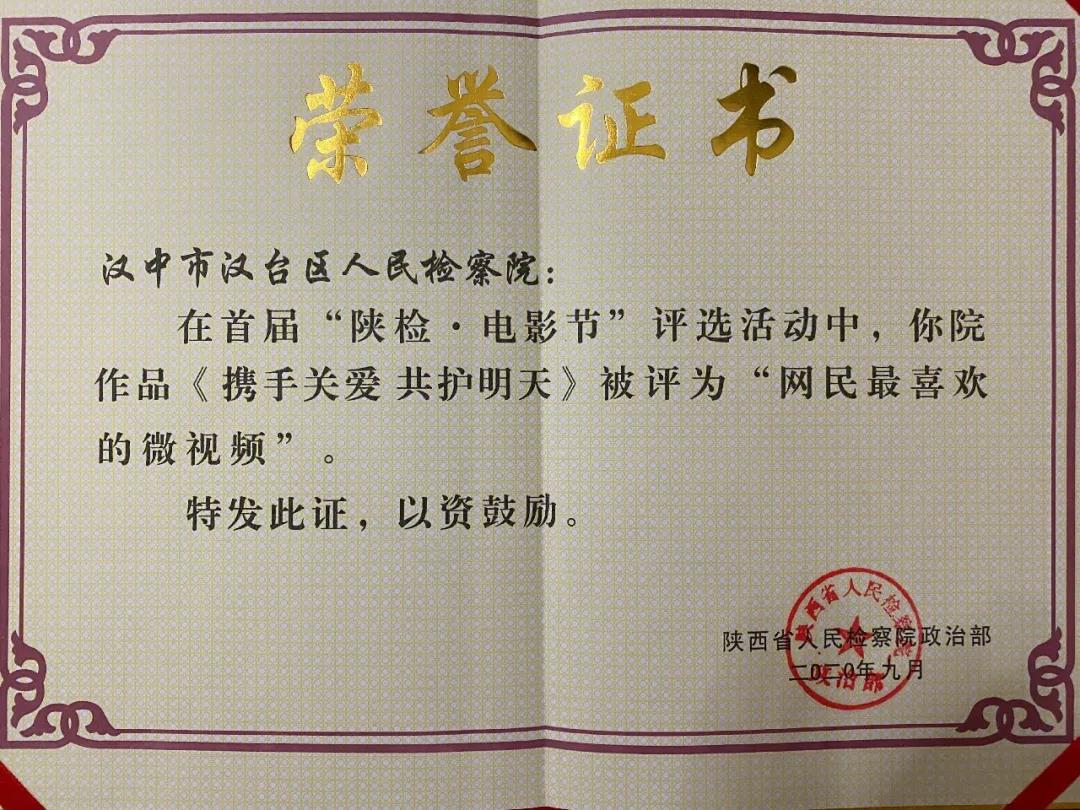 荣誉证书
汉中市汉台区人民检察院：
在首届“陕检·电影节”评选活动中，你院
作品《携手关爱 共护明天》被评为“网民最喜欢
的微视频”。
特发此证，以资鼓励。
陕西省人民检察院政治部
二〇二〇年九月
陕西省人民检察院
政治部